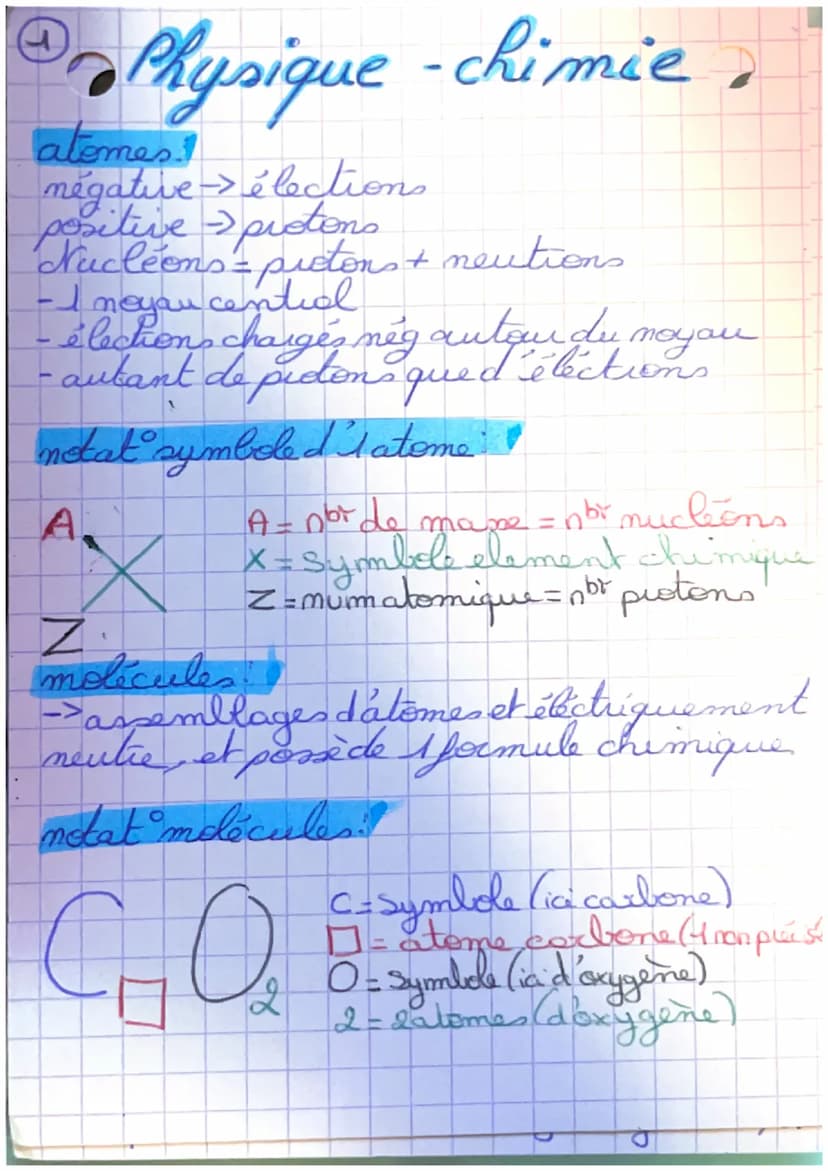 1
Physique - chimie
atomes:
négative -> électrons
positive -> protons
Nucléons = protons + neutrons
- 1 noyau central
- électrons chargés nég autour du noyau
- autant de protons que d'éléctrons
notat° symbole d'1 atome:
A
X
Z
A = nbr de masse = nbr nucléons
X = symbole element chimique
Z = num atomique = nbr protons
molécules:
-> assemblages d'atomes et éléctriquement
neutre, et possède 1 formule chimique
notat° molécules:
C□O2
C = symbole (ici carbone)
□ = atome carbone (1 non précisé
O = symbole (ici d'oxygène)
2 = 2 atomes (d'oxygène)